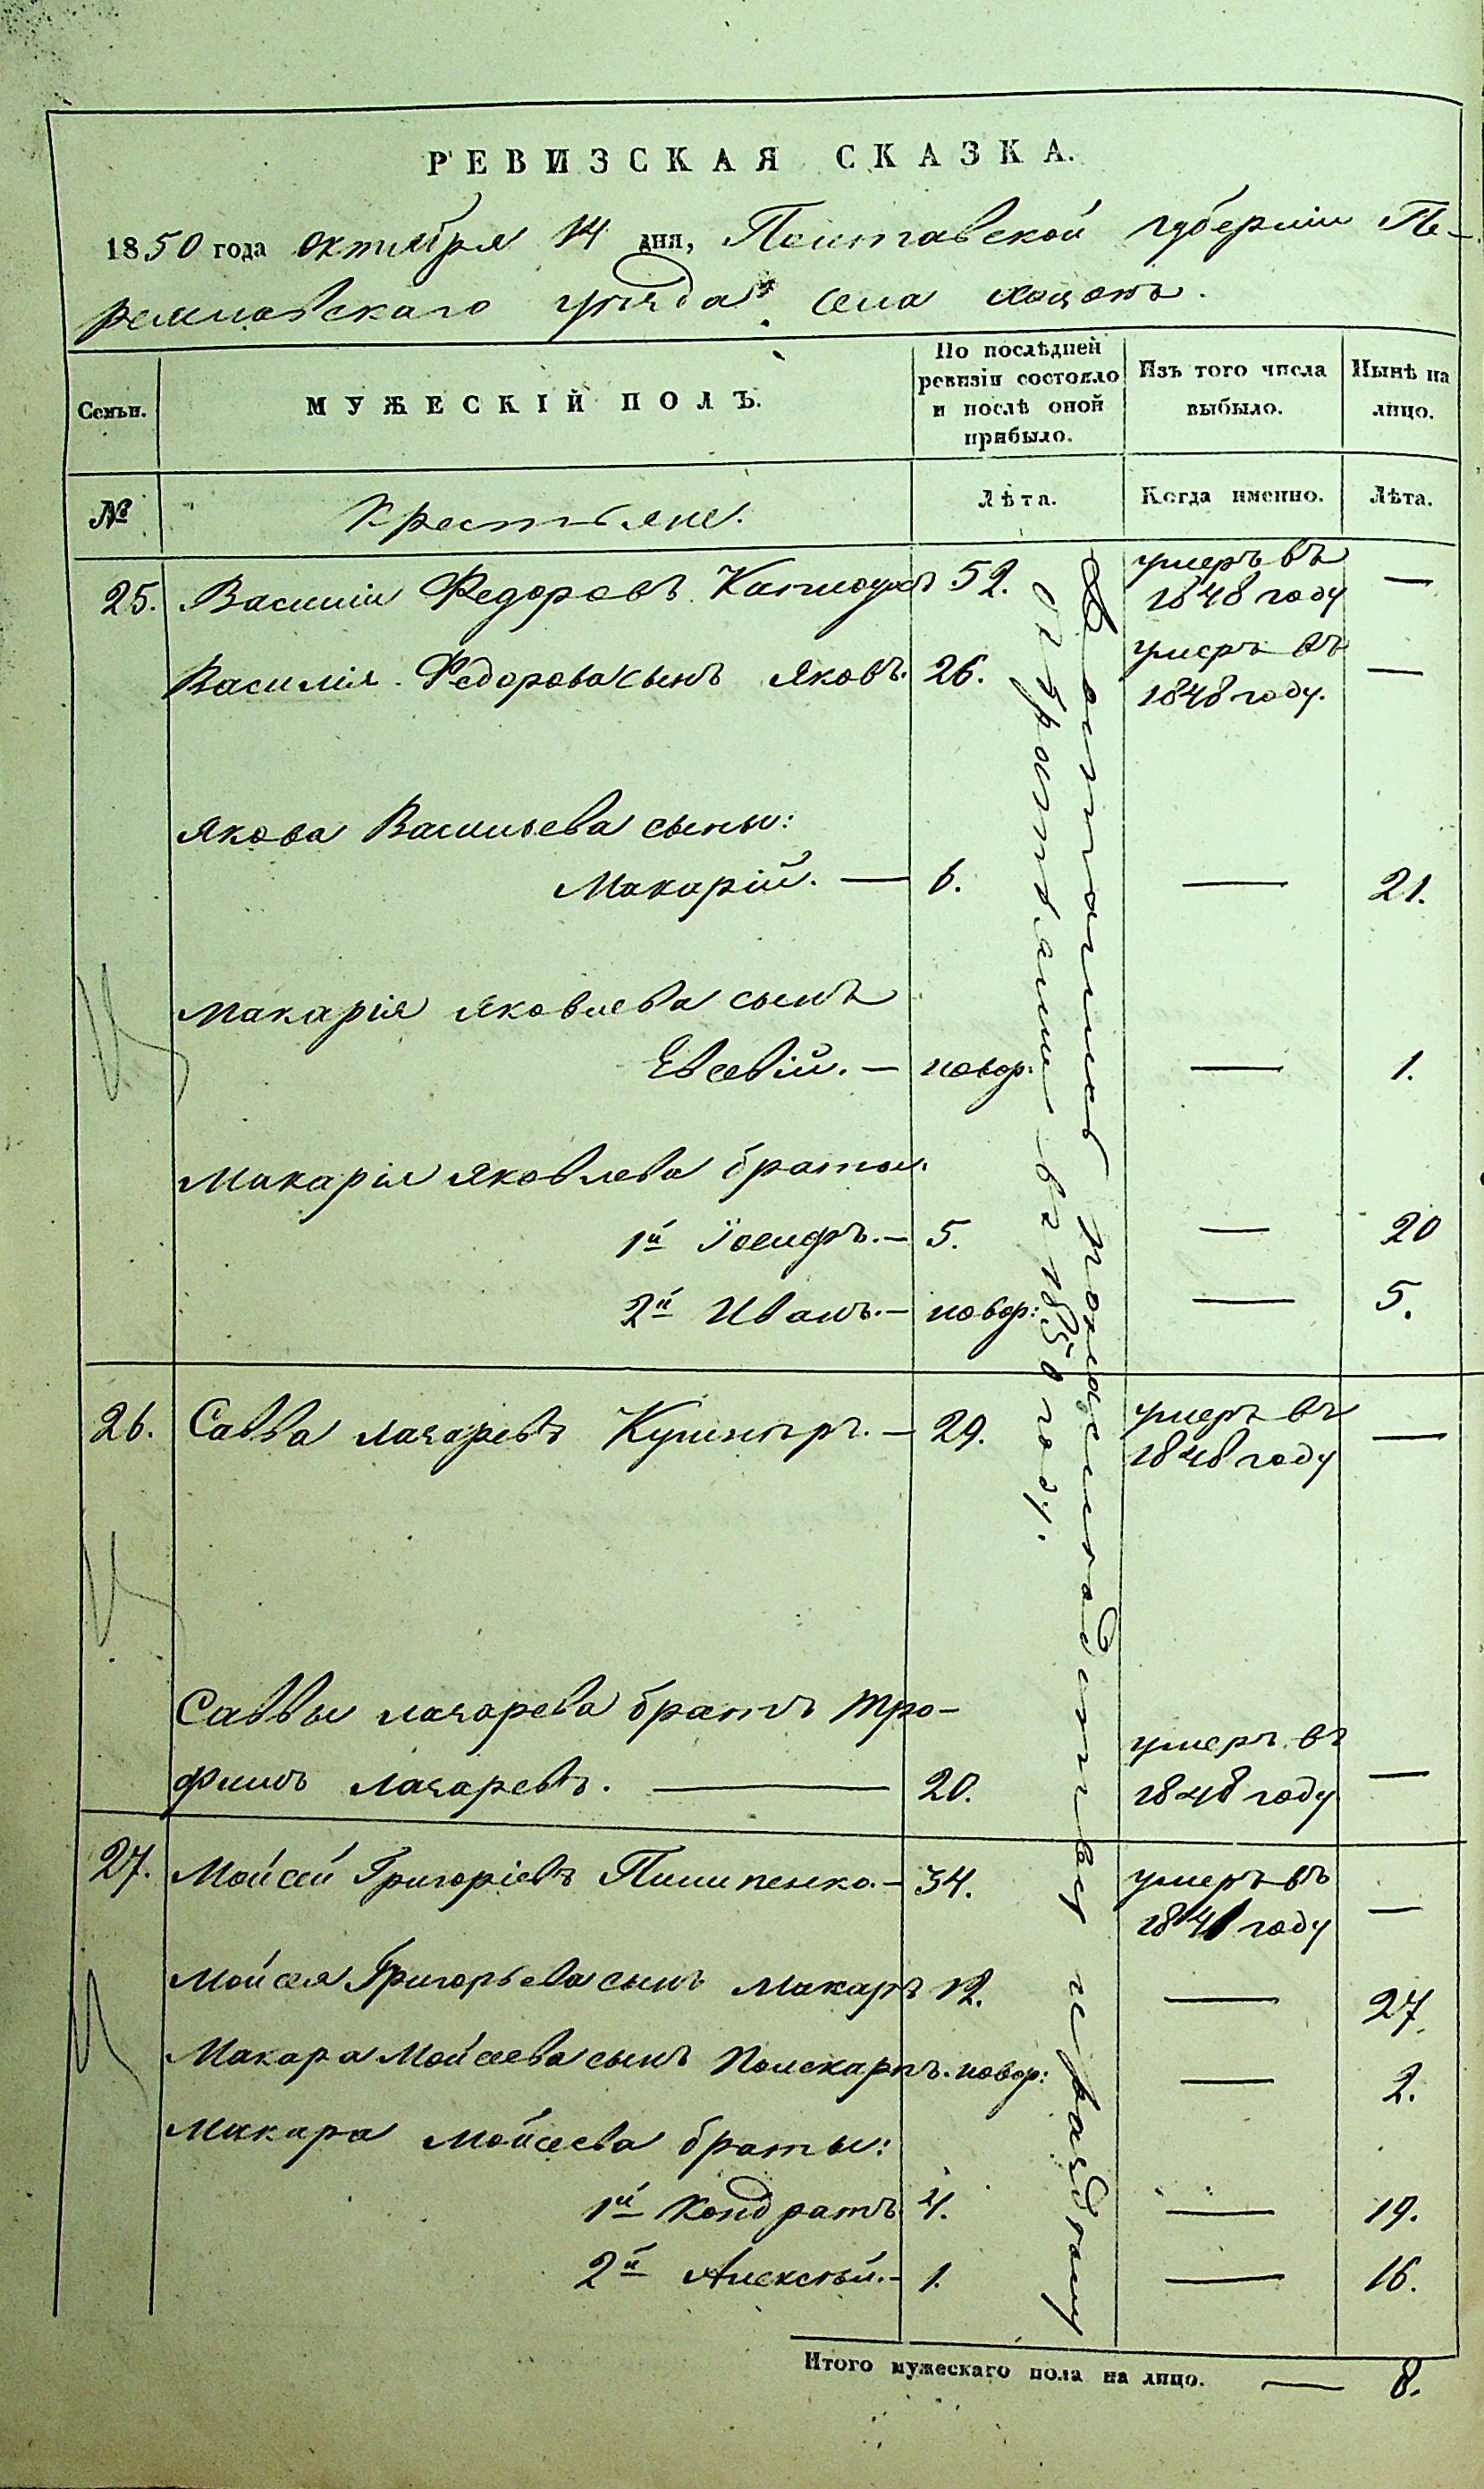 РЕВИЗСКАЯ СКАЗКА.
1850 года октября 14 дня, Полтавской губернии Пе-
реяславскаго уѣзда: села Хоцокъ.
Семьи.
МУЖЕСКІЙ ПОЛЪ.
По послѣдней
ревизіи состояло
и послѣ оной
прибыло.
Изъ того числа
выбыло.
Нынѣ на
лицо.
№
Крестьяне.
Лѣта.
Когда именно.
Лѣта.
25. Василій Федоровъ 52. умеръ въ 1848 году —
Василія Федорова сынъ Яковъ. 26. умеръ въ 1848 году. —
Якова Васильева сыны:
Макарій. — 6. — 21.
Макарія Яковлева сынъ
Евсевій. — новор: — 1.
Макарія Яковлева браты:
1й Іосифъ. — 5. — 20
2й Иванъ. — новор: — 5.
26. Савва Лазаревъ Кушниръ. — 29. умеръ въ 1848 году —
Саввы Лазарева братъ Тро-
фимъ Лазаревъ. — 20. умеръ въ 1848 году —
27. Мойсей Григоріевъ Пилипенко. — 34. умеръ въ 1841 году —
Мойсея Григорьева сынъ Макаръ 12. — 27.
Макара Мойсеева сынъ Поликарпъ. новор: — 2.
Макара Мойсеева браты:
1й Кондратъ 4. — 19.
2й Алексѣй. — 1. — 16.
Достались помѣщику
съ крестьянами въ 1850 году.
Итого мужескаго пола на лицо. — 8.